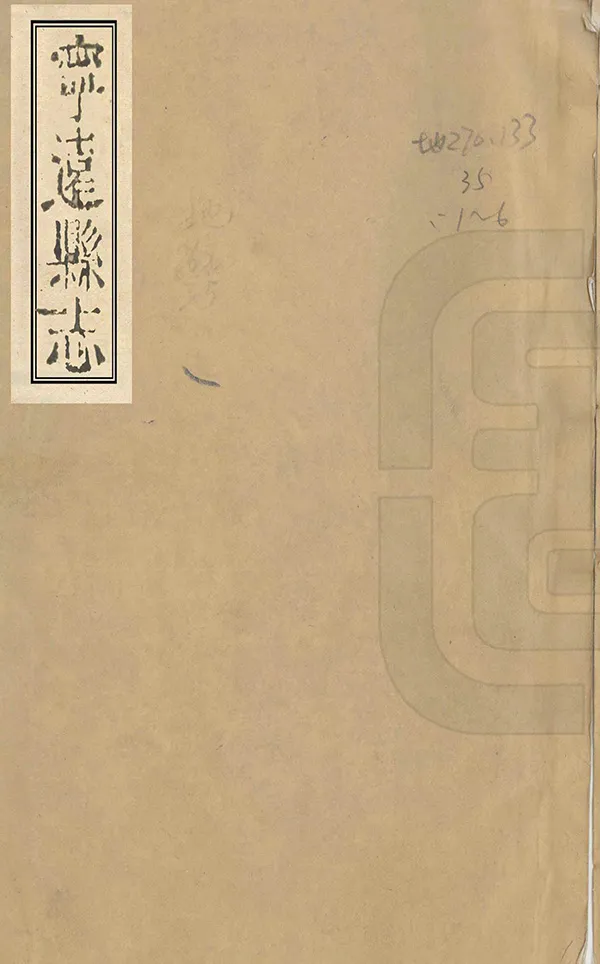 寧遠縣志
地270.133
35
:1~6